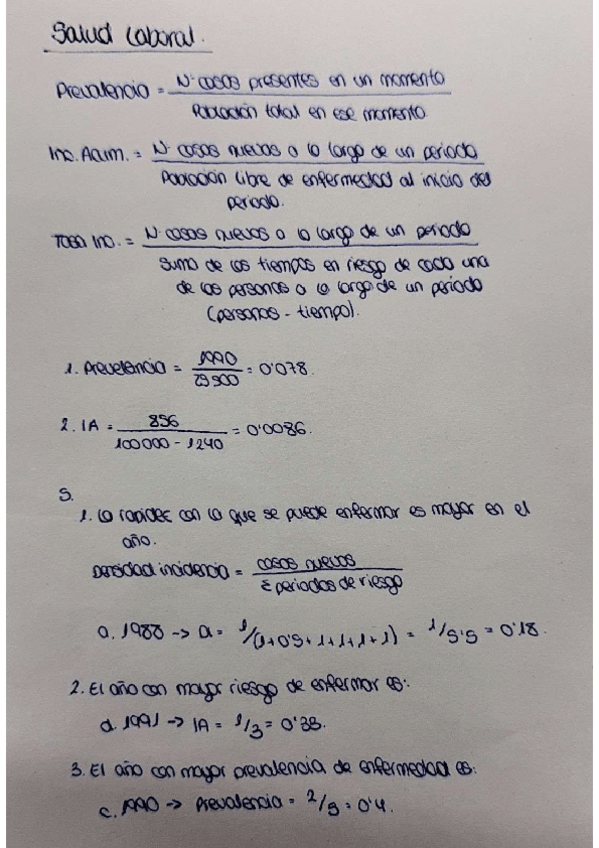 Salud Laboral.
Prevalencia = Nº casos presentes en un momento
Población total en ese momento
Inc. Acum. = Nº casos nuevos a lo largo de un periodo
Población libre de enfermedad al inicio del
periodo.
Tasa Inc. = Nº casos nuevos a lo largo de un periodo
Suma de los tiempos en riesgo de cada una
de las personas a lo largo de un periodo
(personas - tiempo).
1. Prevalencia = / = 0'078.
2. IA = 856 / 100000 - 1240 = 0'0086.
1. La rapidez con la que se puede enfermar es mayor en el
año.
Densidad incidencia = casos nuevos
Σ periodos de riesgo
a. 1988 -> DI = 1/(1+0.5+1+1+1+1) = 1/5.5 = 0'18.
2. El año con mayor riesgo de enfermar es:
d. 1991 -> IA = 1/3 = 0'33.
3. El año con mayor prevalencia de enfermedad es:
c. 1990 -> Prevalencia = 2/5 = 0'4.